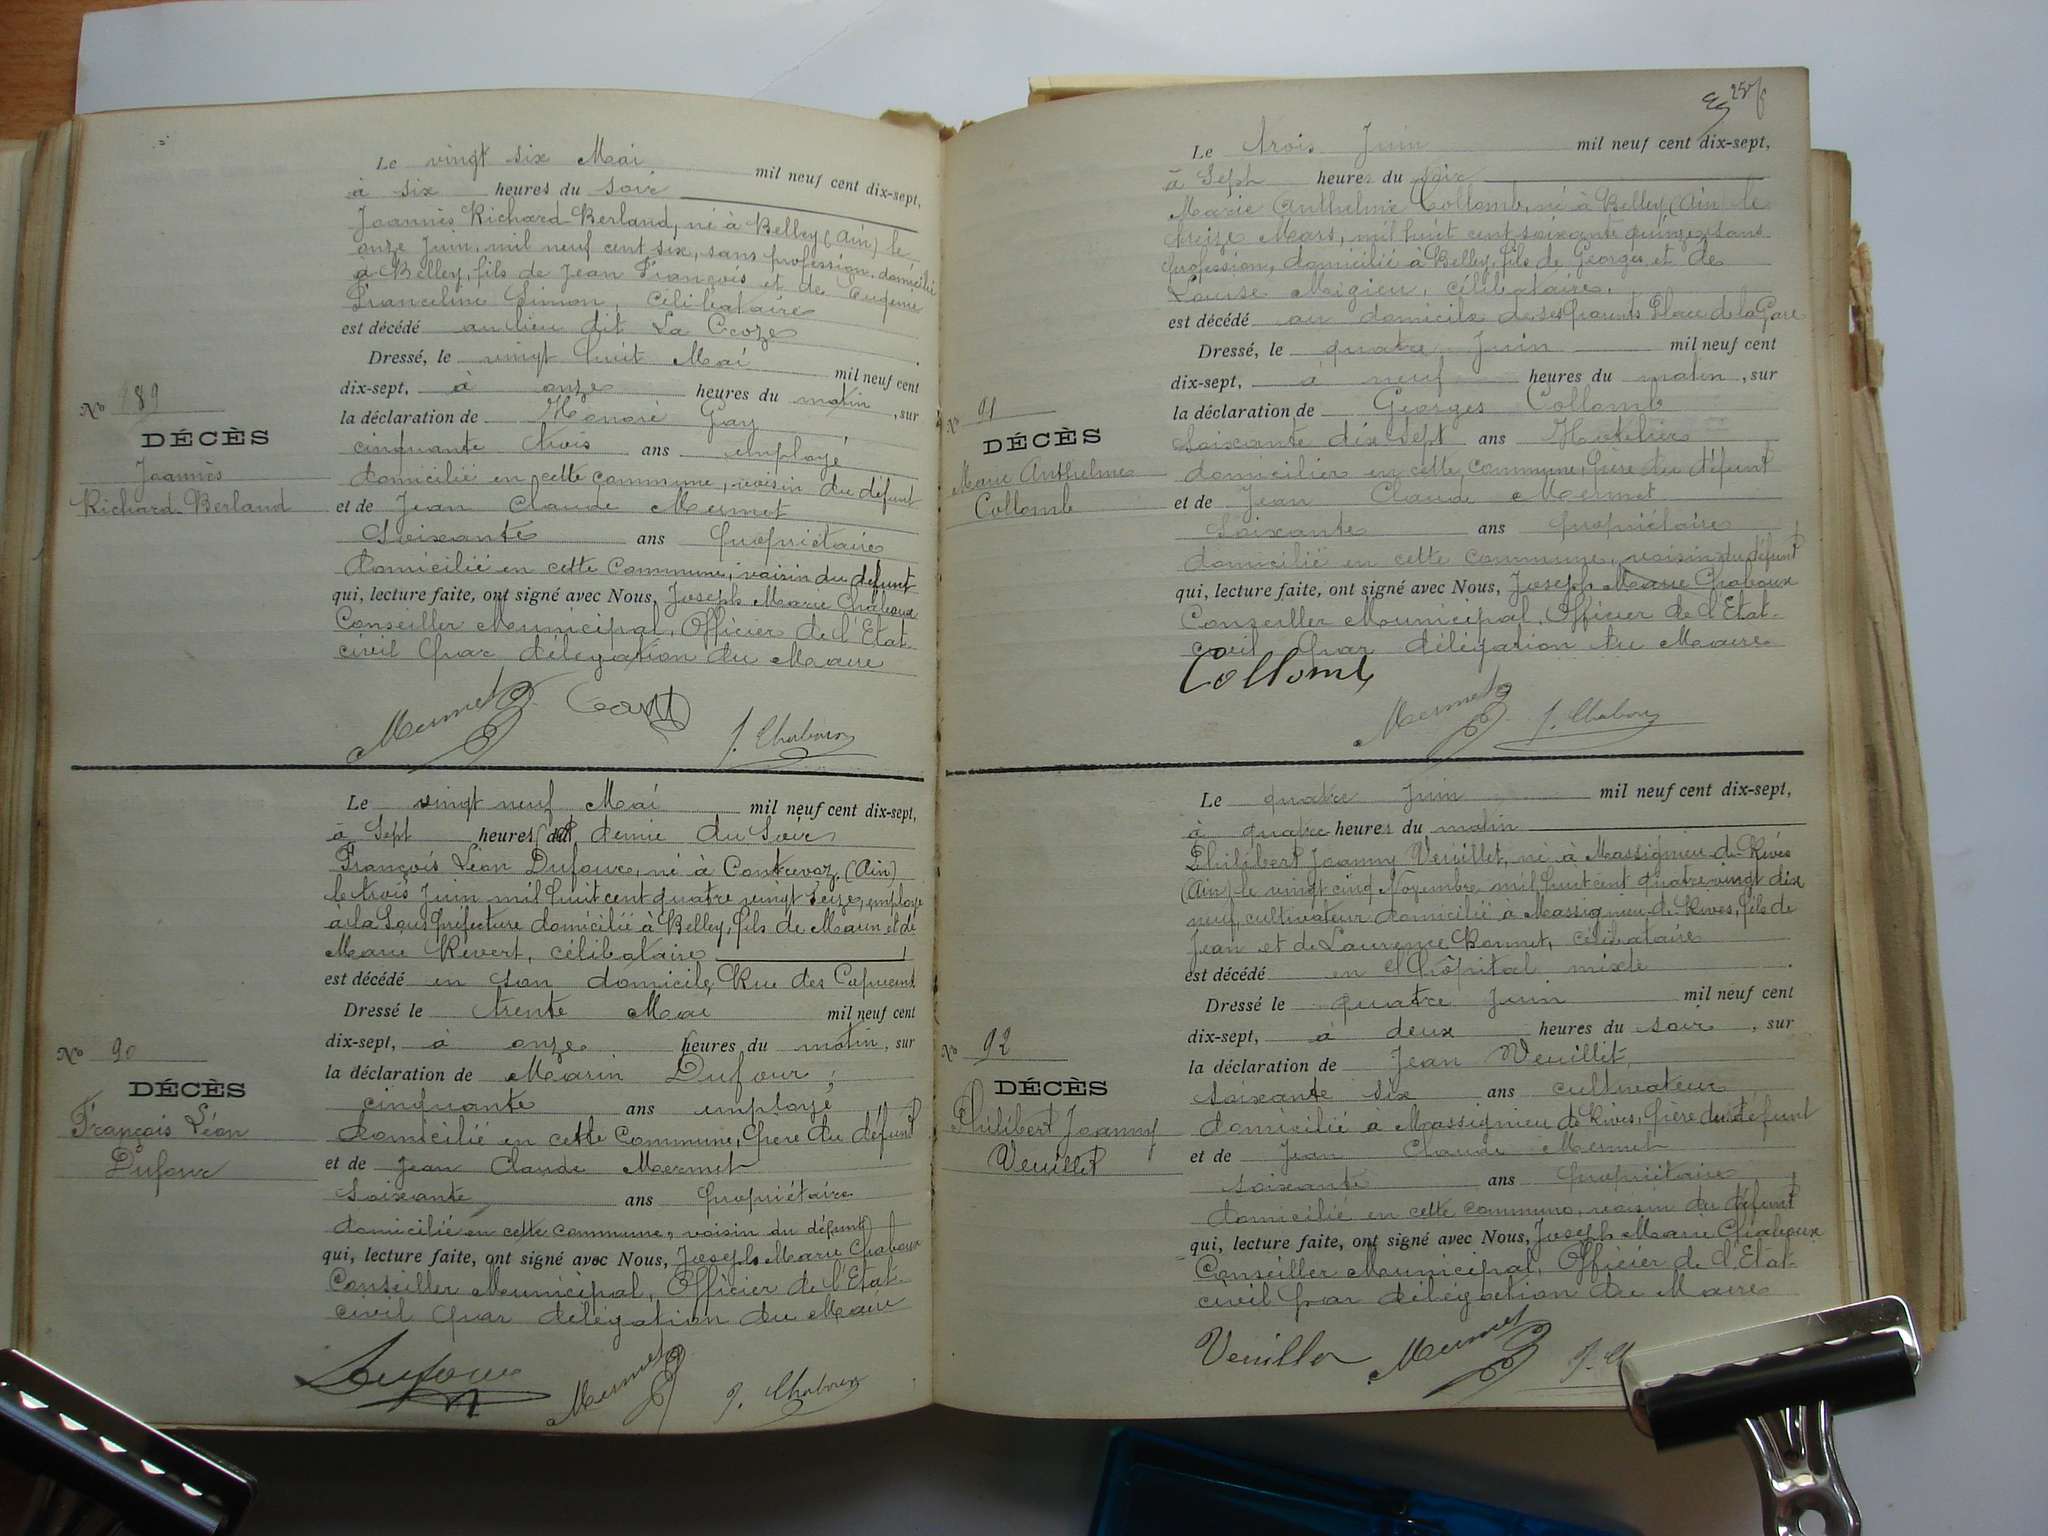 Le vingt six Mai mil neuf cent dix-sept,
à six heures du soir
Joannès Richard-Berland, né à Belley (Ain) le
onze Juin, mil neuf cent six, sans profession, domicilié
à Belley, fils de Jean François et de Eugénie
Franceline Simon, célibataire
est décédé au lieu dit La Croze
Dressé, le vingt huit Mai mil neuf cent
dix-sept, à onze heures du matin, sur
la déclaration de Honoré Gay
cinquante trois ans employé
domicilié en cette commune, voisin du défunt
et de Jean Claude Mermet
Soixante ans propriétaire
domicilié en cette Commune, voisin du défunt
qui, lecture faite, ont signé avec Nous, Joseph Marie Chaboux
Conseiller Municipal, Officier de l'Etat-
civil par délégation du Maire
Mermet Gay J. Chaboux
No 89
DÉCÈS
Joannès
Richard-Berland
Le vingt neuf Mai mil neuf cent dix-sept,
à Sept heures et demie du Soir
François Léon Dufour, né à Contrevoz (Ain)
le trois Juin mil huit cent quatre vingt seize, employé
à la Sous Préfecture domicilié à Belley, fils de Marin et de
Marie Revert, célibataire
est décédé en son domicile, Rue des Capucins
Dressé le trente Mai mil neuf cent
dix-sept, à onze heures du matin, sur
la déclaration de Marin Dufour,
cinquante ans employé
domicilié en cette Commune, père du défunt
et de Jean Claude Mermet
Soixante ans propriétaire
domicilié en cette commune, voisin du défunt
qui, lecture faite, ont signé avec Nous, Joseph Marie Chaboux
Conseiller Municipal, Officier de l'Etat-
civil par délégation du Maire
Dufour Mermet J. Chaboux
No 90
DÉCÈS
François Léon
Dufour
25
Le trois Juin mil neuf cent dix-sept,
à Sept heures du soir
Marie Anthelme Collomb, né à Belley (Ain) le
treize Mars, mil huit cent soixante quinze, sans
profession, domicilié à Belley, fils de Georges et de
Louise Migieu, célibataire,
est décédé au domicile de ses parents Place de la Gare
Dressé, le quatre Juin mil neuf cent
dix-sept, à neuf heures du matin, sur
la déclaration de Georges Collomb
Soixante dix sept ans Hôtelier
domicilier en cette commune, père du défunt
et de Jean Claude Mermet
Soixante ans propriétaire
domicilié en cette commune, voisin du défunt
qui, lecture faite, ont signé avec Nous, Joseph Marie Chaboux
Conseiller Municipal, Officier de l'Etat-
civil par délégation du Maire
Collomb
Mermet J. Chaboux
No 91
DÉCÈS
Marie Anthelme
Collomb
Le quatre Juin mil neuf cent dix-sept,
à quatre heures du matin
Philibert Joanny Veuillet, né à Massignieu-de-Rives
(Ain) le vingt cinq Novembre mil huit cent quatre vingt dix
neuf, cultivateur domicilié à Massignieu-de-Rives, fils de
Jean et de Laurence Bonnet, célibataire
est décédé en l'hôpital mixte
Dressé le quatre Juin mil neuf cent
dix-sept, à deux heures du soir, sur
la déclaration de Jean Veuillet,
soixante six ans cultivateur
domicilié à Massignieu de Rives, père du défunt
et de Jean Claude Mermet
soixante ans propriétaire
domicilié en cette commune, voisin du défunt
qui, lecture faite, ont signé avec Nous, Joseph Marie Chaboux
Conseiller Municipal, Officier de l'Etat-
civil par délégation du Maire
Veuillet Mermet
No 92
DÉCÈS
Philibert Joanny
Veuillet